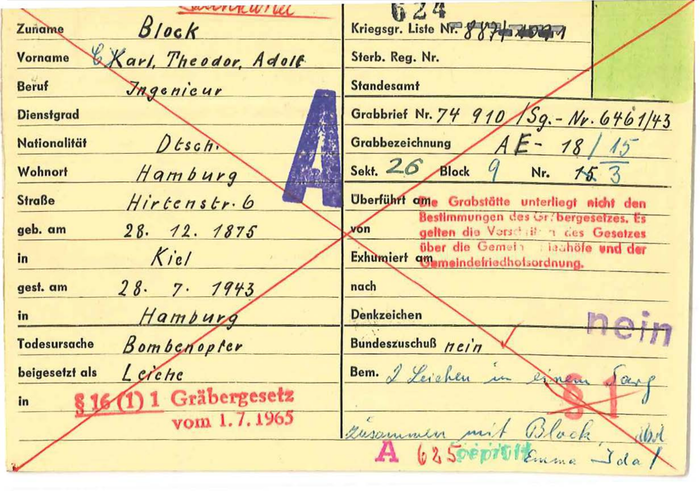 624
Zuname Block
Vorname Karl, Theodor, Adolf
Beruf Ingenieur
Dienstgrad
Nationalität Dtsch.
Wohnort Hamburg
Straße Hirtenstr. 6
geb. am 28. 12. 1875
in Kiel
gest. am 28. 7. 1943
in Hamburg
Todesursache Bombenopfer
beigesetzt als Leiche
in
§ 16 (1) 1 Gräbergesetz
vom 1. 7. 1965
A
Kriegsgr. Liste Nr.
Sterb. Reg. Nr.
Standesamt
Grabbrief Nr. 74 910 / Sg.-Nr. 6461/43
Grabbezeichnung AE - 18 / 15
Sekt. 26 Block 9 Nr. 15 3
Überführt am
von
Exhumiert am
nach
Die Grabstätte unterliegt nicht den
Bestimmungen des Gräbergesetzes. Es
gelten die Vorschriften des Gesetzes
über die Gemeindefriedhöfe und der
Gemeindefriedhofsordnung.
Denkzeichen
nein
Bundeszuschuß nein
Bem. 2 Leichen in einem Sarg
§ 1
zusammen mit Block,
A 625 Emma Ida!